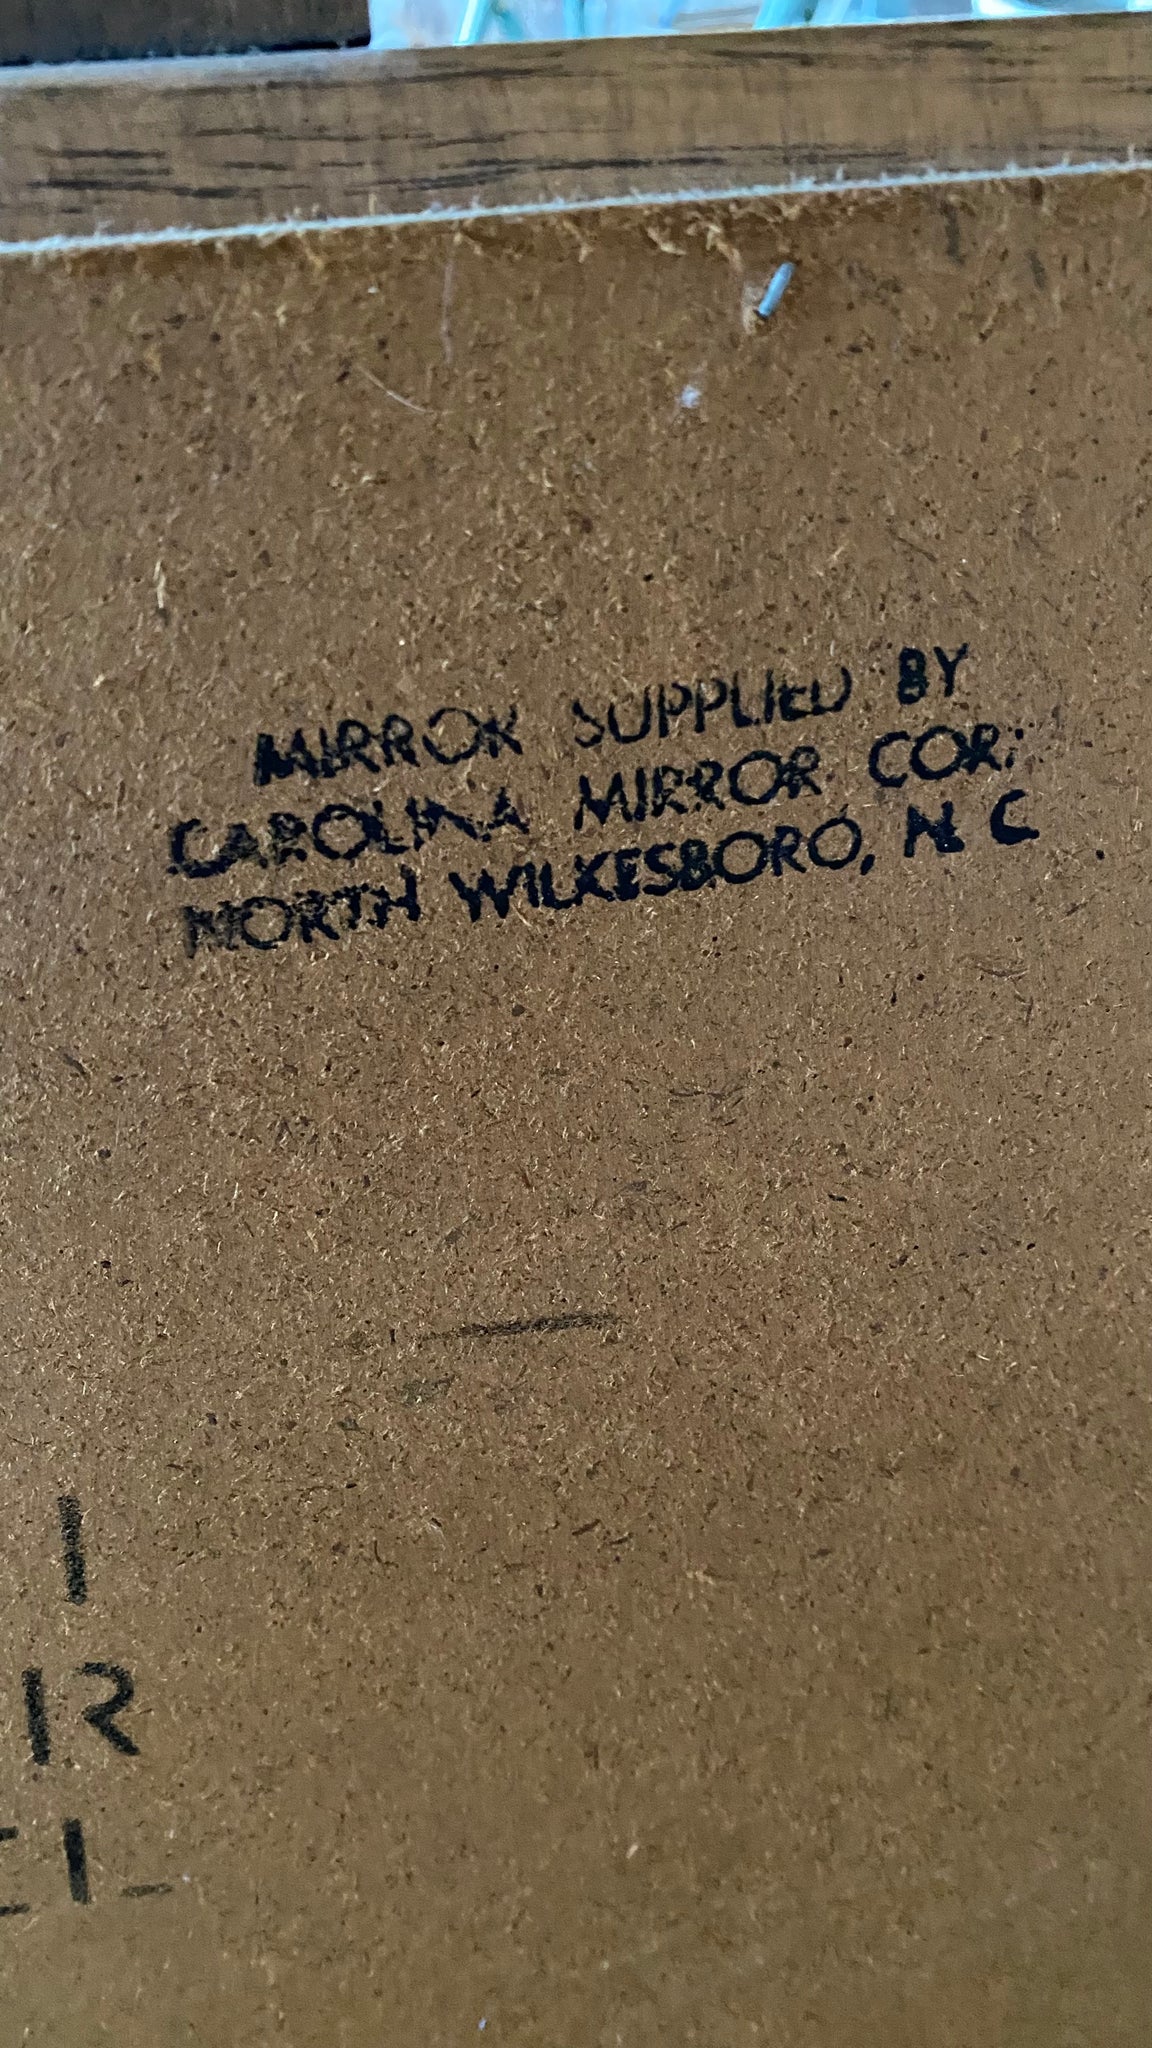 MIRROR SUPPLIED BY
CAROLINA MIRROR CORP
NORTH WILKESBORO, N C